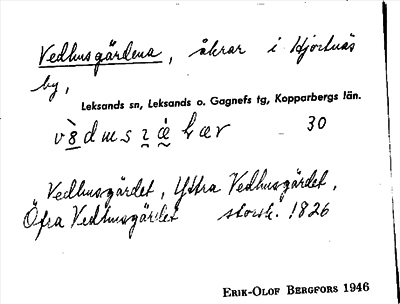 Vedhusgärdena, åkrar i Hjortnäs
by,
Leksands sn, Leksands o. Gagnefs tg, Kopparbergs län.
30
Vedhusgärdet, Yttra Vedhusgärdet,
Öfra Vedhusgärdet storsk. 1826
ERIK-OLOF BERGFORS 1946